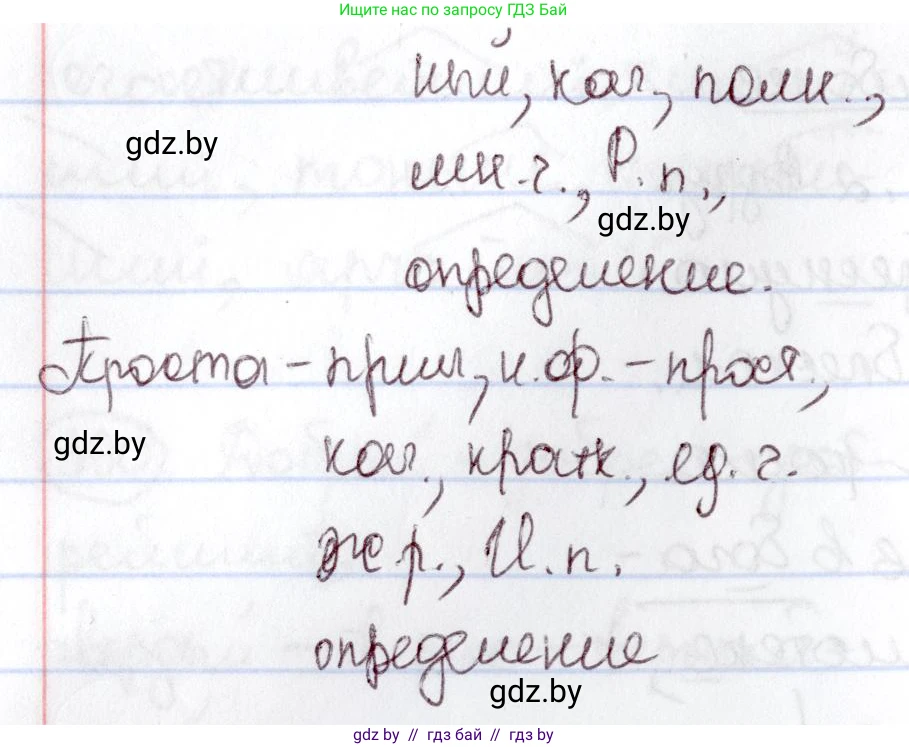 Ищите нас по запросу ГДЗ Бай
ный, кач., полн.,
gdz.by
мн.ч., Р.п.,
gdz.by
определение.
Проста – прил., н.ф. – прост.,
gdz.by
кач., кратк., ед.ч.
ж.р., И.п.
определение
gdz.by
gdz.by // гдз бай // gdz by